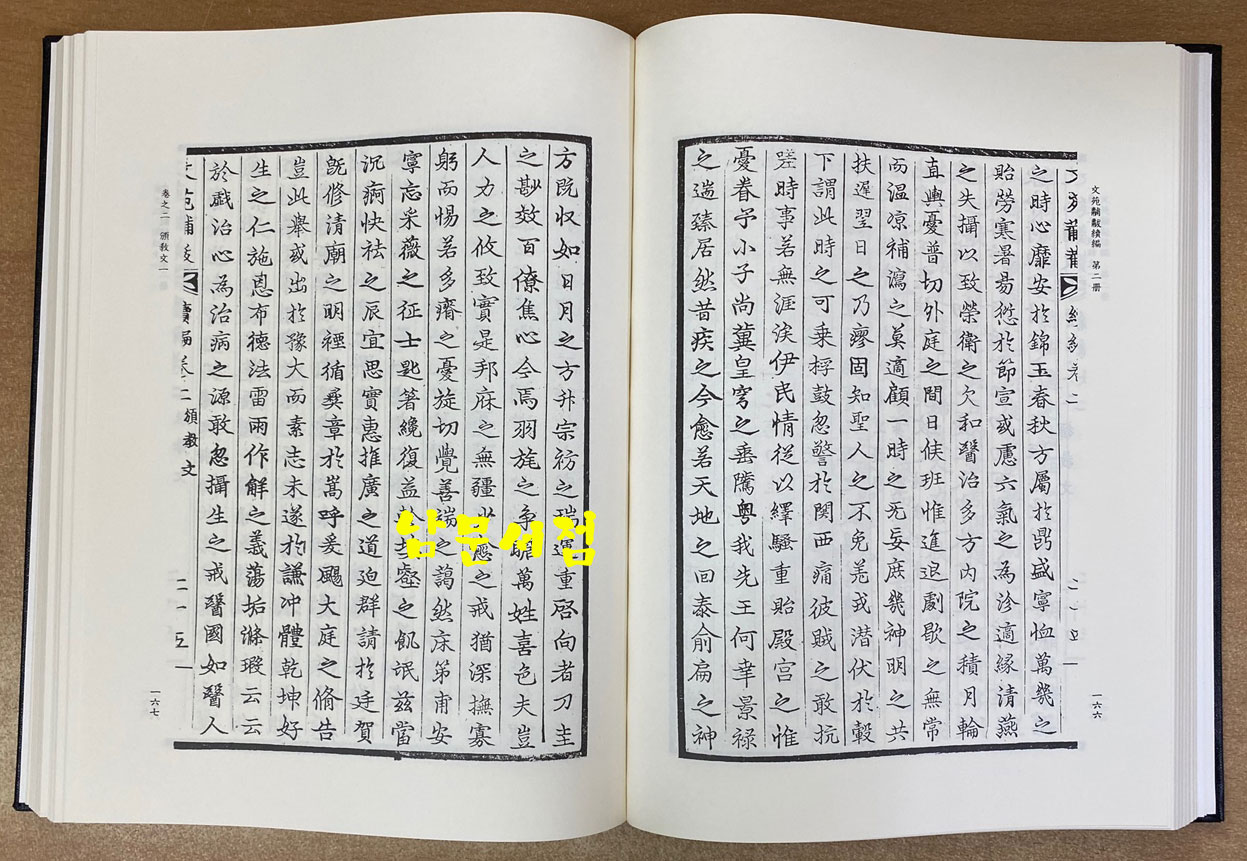 文苑黼黻續編 第二冊
之時心靡安於錦玉春秋方屬於鼎盛寧恤萬幾之
貽勞寒暑易愆於節宣或慮六氣之為沴適緣清燕
之失攝以致榮衛之欠和醫治多方內院之積月輪
直輿憂普切外庭之間日俟班惟進退劇歇之無常
而溫凉補瀉之莫適顧一時之无妄庶幾神明之共
扶遲翌日之乃瘳固知聖人之不免羌戎潜伏於轂
下謂此時之可乗桴鼓忽警於関西痛彼賊之敢抗
嗟時事若無涯涘伊民情從以繹騷重貽殿宮之惟
憂眷予小子尚冀皇穹之垂隲粤我先王何幸景祿
之遄臻居然昔疾之今愈若天地之回泰俞扁之神
一六六
方旣収如日月之方升宗祊之瑞運重啓向者刀圭
之尠效百僚焦心今焉羽旄之争覩萬姓喜色夫豈
人力之攸致實是邦庥之無疆少愈之戒猶深撫寡
躬而惕若多瘠之憂旋切覺善端之藹然床第甫安
寧忘采薇之征士匙著纔復益
之飢氓兹當
沉痾快祛之辰宜思實惠推廣之道迫群請於廷賀
旣修清廟之明禋循彜章於嵩呼爰颺大庭之脩告
豈此擧或出於豫大而素志未遂於謙冲體乾坤好
生之仁施恩布德法雷雨作解之義蕩垢滌瑕云云
於戲治心為治病之源敢忽攝生之戒醫國如醫人
文苑黼黻 續編卷二 頒教文
二十五
卷之二 頒敎文一
一六七
남문서점